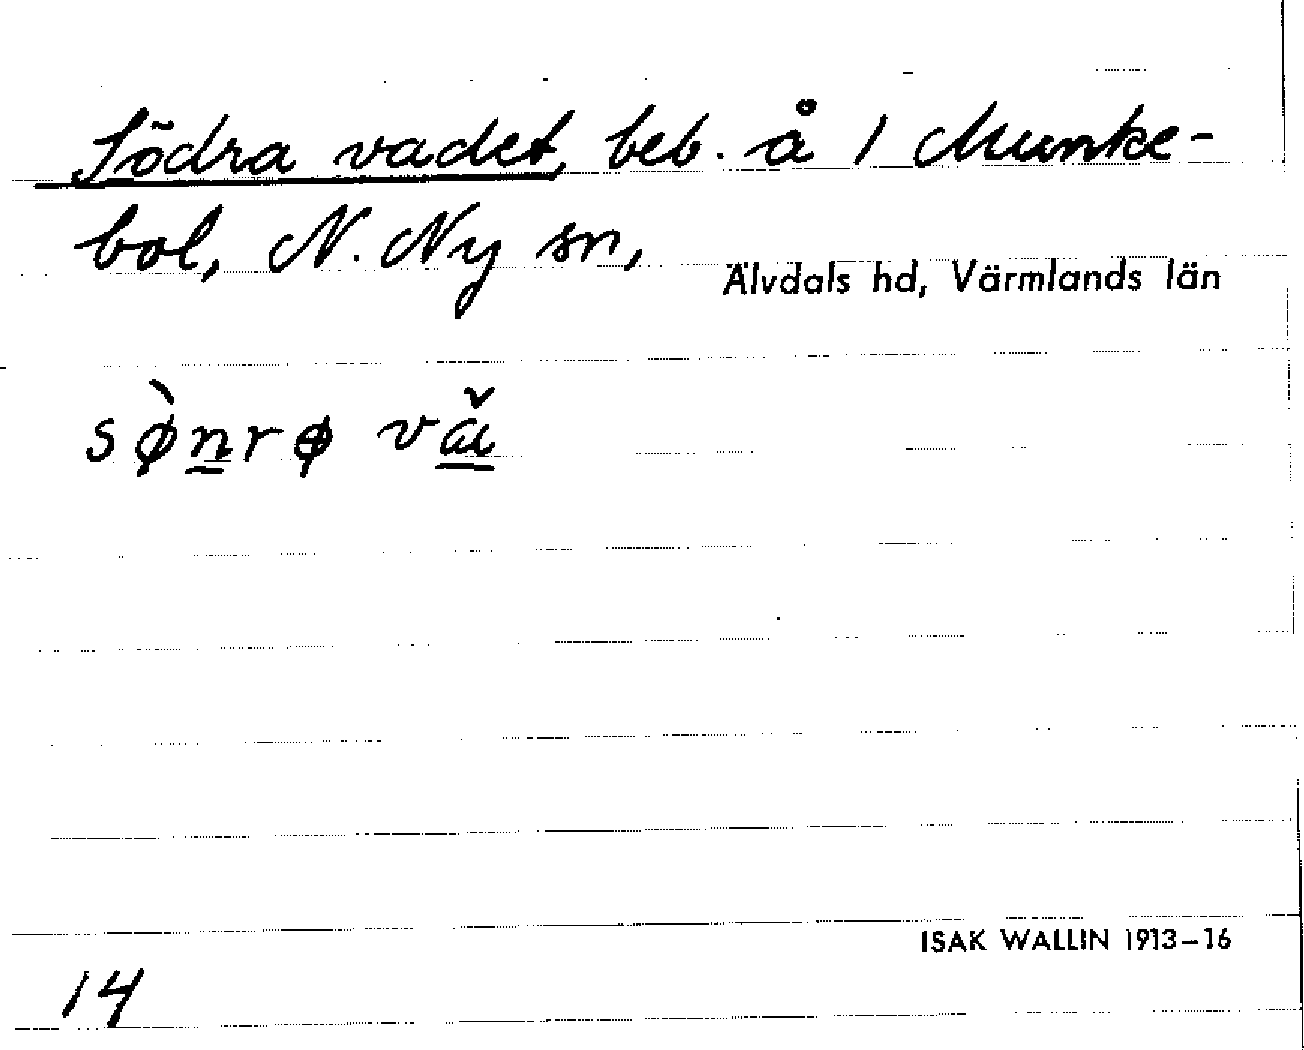 Södra vadet, beb. å 1 Munke-
bol, N. Ny sn, Älvdals hd, Värmlands län
sø̀n̲rø vǎ̲
ISAK WALLIN 1913–16
14